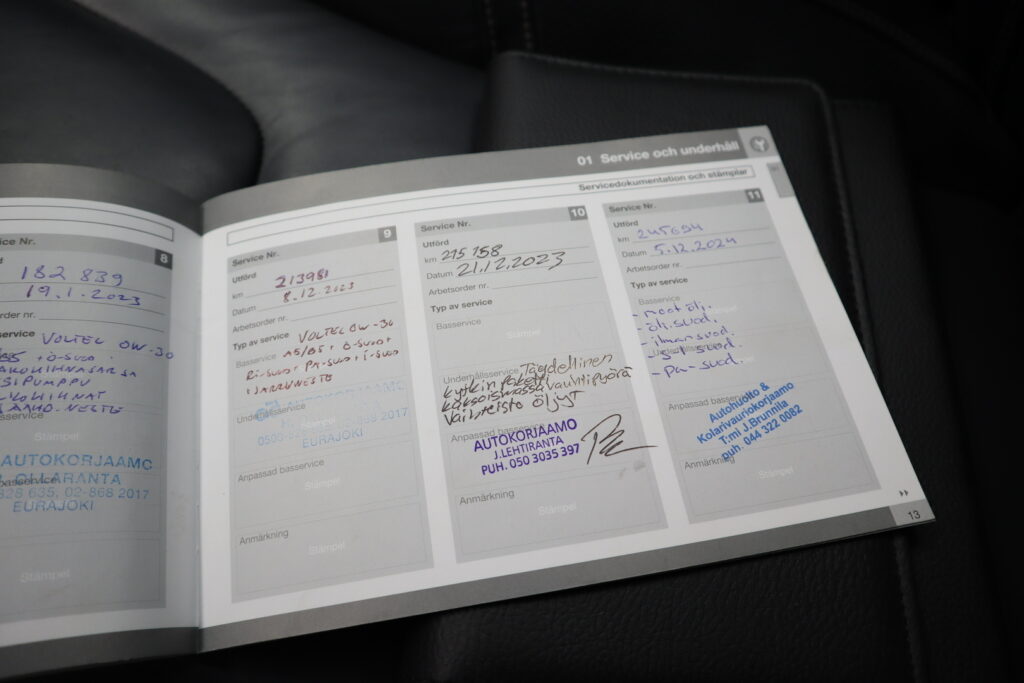 01 Service och underhåll
Servicedokumentation och stämplar
8
182 839
19.1.2023
order nr.
service VOLTEL OW-30
+ Ö-SUOD.
VESIPUMPPU
Stämpel
AUTOKORJAAMO
OLLARANTA
828 635, 02-868 2017
EURAJOKI
Stämpel
Service Nr. 9
Utförd
km 213981
Datum 8.12.2023
Arbetsorder nr.
Typ av service VOLTEL OW-30
Basservice A5/B5 + Ö-SUOD+
Ri-SUOD+ PA-SUOD+ i-SUOD
+JARRUNESTE
Underhållsservice
0500-828 635, 02-868 2017
EURAJOKI
Anpassad basservice
Stämpel
Anmärkning
Stämpel
Service Nr. 10
Utförd
km 215 158
Datum 21.12.2023
Arbetsorder nr.
Typ av service
Basservice
Stämpel
Underhållsservice Täydellinen
kytkin paketti
kaksoismassavauhtipyörä
Vaihteisto öljyt
Anpassad basservice
AUTOKORJAAMO
J.LEHTIRANTA
PUH. 050 3035 397
Anmärkning
Stämpel
Service Nr. 11
Utförd
km 245694
Datum 5.12.2024
Arbetsorder nr.
Typ av service
Basservice
- moot.ölj.
- ölj.suod.
- ilman suod.
Underhållsservice
- s-i suod.
- pa-suod.
Anpassad basservice
Autohuolto &
Kolarivauriokorjaamo
T:mi J.Brunnila
puh. 044 322 0082
Anmärkning
Stämpel
13